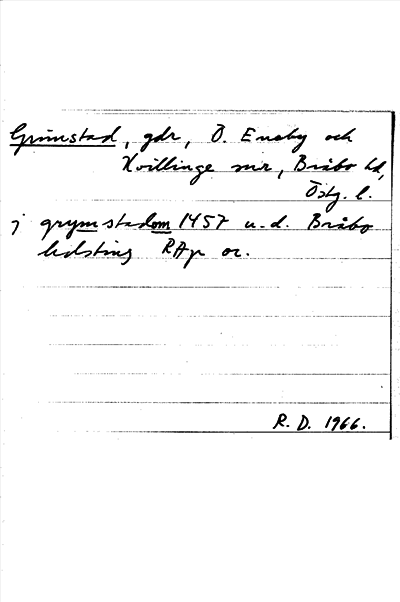 Grimstad, gdr, Ö. Eneby och
Kvillinge snr, Bråbo hd,
Östg. l.
j grymstadom 1457 u.d. Bråbo
hdsting RAp or.
R. D. 1966.